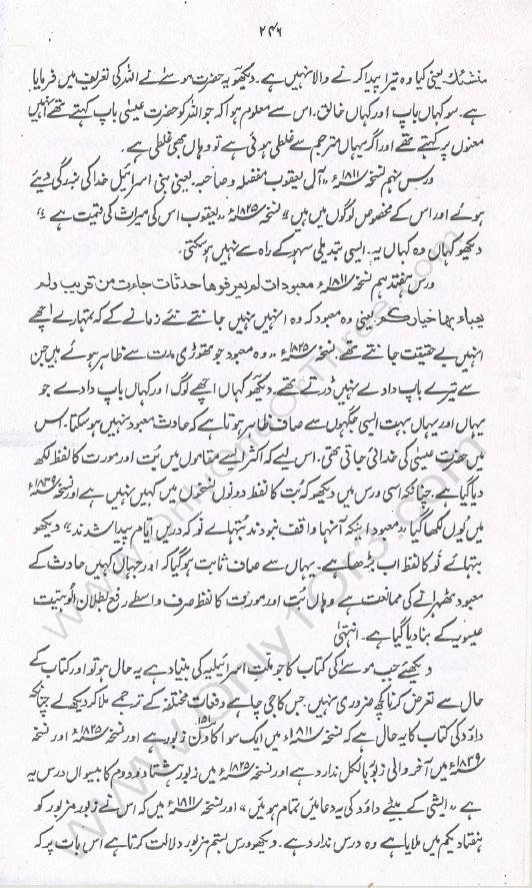 ۲۴۶
منشئك یعنی کیا وہ تیرا پیدا کرنے والا نہیں ہے۔ دیکھو یہ حضرت موسےٰ نے اللہ کی تعریف میں فرمایا
ہے۔ سو کہاں باپ اور کہاں خالق۔ اس سے معلوم ہوا کہ جو اللہ کو حضرت عیسیٰ باپ کہتے تھے اُنہیں
معنوں پر کہتے تھے اور اگر یہاں مترجم سے غلطی ہوئی ہے تو وہاں بھی غلطی ہے۔
ورس نہم نسخہ ۱۸۱۱ء «آل یعقوب مفضلہ و صاحبہ۔ یعنی بنی اسرائیل خدا کی بزرگی دیئے
ہوئے اور اس کے مخصوص لوگوں میں ہیں» نسخہ ۱۸۲۵ء «یعقوب اس کی میراث کی قسمت ہے»
دیکھو کہاں وہ کہاں یہ۔ ایسی تبدیلی سہو کے راہ سے نہیں ہو سکتی۔
ورس ہفتدہم نسخہ ۱۸۱۱ء معبودات لم یعرفوها حدثات جاءت من قریب ولم
یعباو بها خیارکم یعنی وہ معبود کہ وہ انہیں نہیں جانتے نئے زمانے کے کہ تمہارے اچھے
انہیں بے حقیقت جانتے تھے نسخہ ۱۸۲۵ء «وہ معبود جو تھوڑی مدت سے ظاہر ہوئے ہیں جن
سے تیرے باپ دادے نہیں ڈرتے تھے۔ دیکھو کہاں اچھے لوگ اور کہاں باپ دادے جو
یہاں اور یہاں بہت ایسی جگہوں سے صاف ظاہر ہوتا ہے کہ حادث معبود نہیں ہو سکتا۔ بس
میں حضرت عیسیٰ کی خدائی جاتی تھی۔ اس لیے کہ اکثر ایسے مقاموں میں بُت اور مورت کا لفظ لکھ
دیا گیا ہے۔ چنانچہ اسی ورس میں دیکھو کہ بُت کا لفظ دونوں نسخوں میں کہیں نہیں ہے اور نسخہ ۱۸۳۹ء
میں یوں لکھا گیا «معبود اینکہ آنہا واقف نبودند بتہائے نو کہ دریں ایام پیدا شدند» دیکھو
بتہائے نو کا لفظ اب بڑھا ہے۔ یہاں سے صاف ثابت ہو گیا کہ اور جہاں کہیں حادث کے
معبود ٹھہرانے کی ممانعت ہے وہاں بُت اور مورت کا لفظ صرف واسطے رفع بطلان الوہیت
عیسویہ کے بنا دیا گیا ہے۔ انتہیٰ
دیکھئے جب موسےٰ کی کتاب کا جو ملّت اسرائیلیہ کی بنیاد ہے یہ حال ہو تو اور کتاب کے
حال سے تعرض کرنا کچھ ضروری نہیں۔ جس کا جی چاہے دفعات مختلفہ کے ترجمے ملا کر دیکھ لے چنانچہ
داؤد کی کتاب کا یہ حال ہے کہ نسخہ ۱۸۱۱ء میں ایک سو اکاون ۱۵۱ زبور ہے اور نسخہ ۱۸۲۵ء اور نسخہ
۱۸۳۹ء میں آخر والی زبور بالکل ندارد ہے اور نسخہ ۱۸۲۵ء میں زبور ہشتاد و دوم کا بیسواں درس یہ
ہے «ایشی کے بیٹے داؤد کی یہ دعائیں تمام ہوئیں» اور نسخہ ۱۸۱۱ء میں کہ اس نے زبور مزبور کو
ہفتاد یکم میں ملایا ہے وہ درس ندارد ہے۔ دیکھو ورس بستم مزبور دلالت کرتا ہے اس بات پر کہ
www.Only1Or3.com
www.OnlyOneOrThree.com